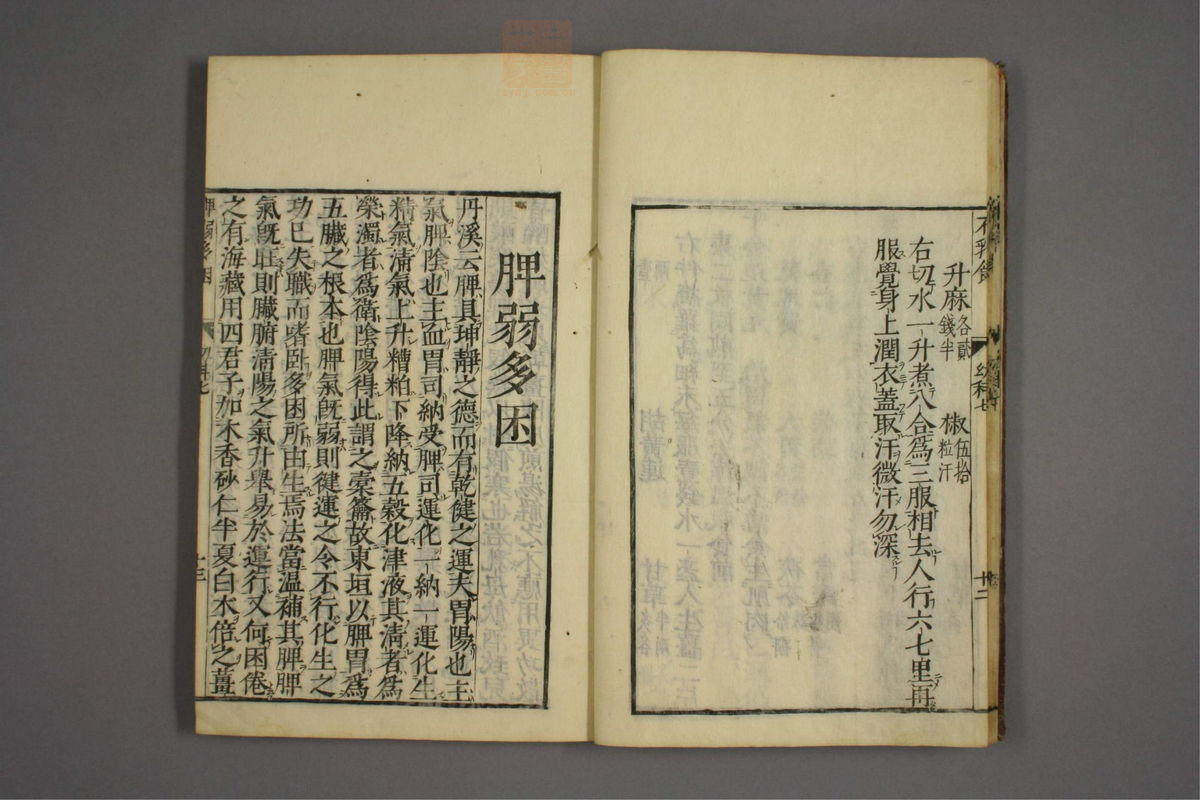 升麻各貳錢半 椒伍拾粒汗
右切水一升煮八合爲三服相去人行六七里再
服覺身上潤衣蓋取汗微汗勿深
幼科七
十二
脾弱多困
丹溪云脾具坤靜之德而有乾健之運夫胃陽也主
氣脾陰也主血胃司納受脾司運化一納一運化生
精氣清氣上升糟粕下降納五穀化津液其清者爲
榮濁者爲衛陰陽得此謂之橐籥故東垣以脾胃爲
五臟之根本也脾氣旣弱則健運之令不行化生之
功已失職而嗜卧多困所由生焉法當温補其脾脾
氣旣壯則臟腑清陽之氣升舉易於運行又何困倦
之有海藏用四君子加木香砂仁半夏白木倍之薑
脾弱多困
幼科七
十三